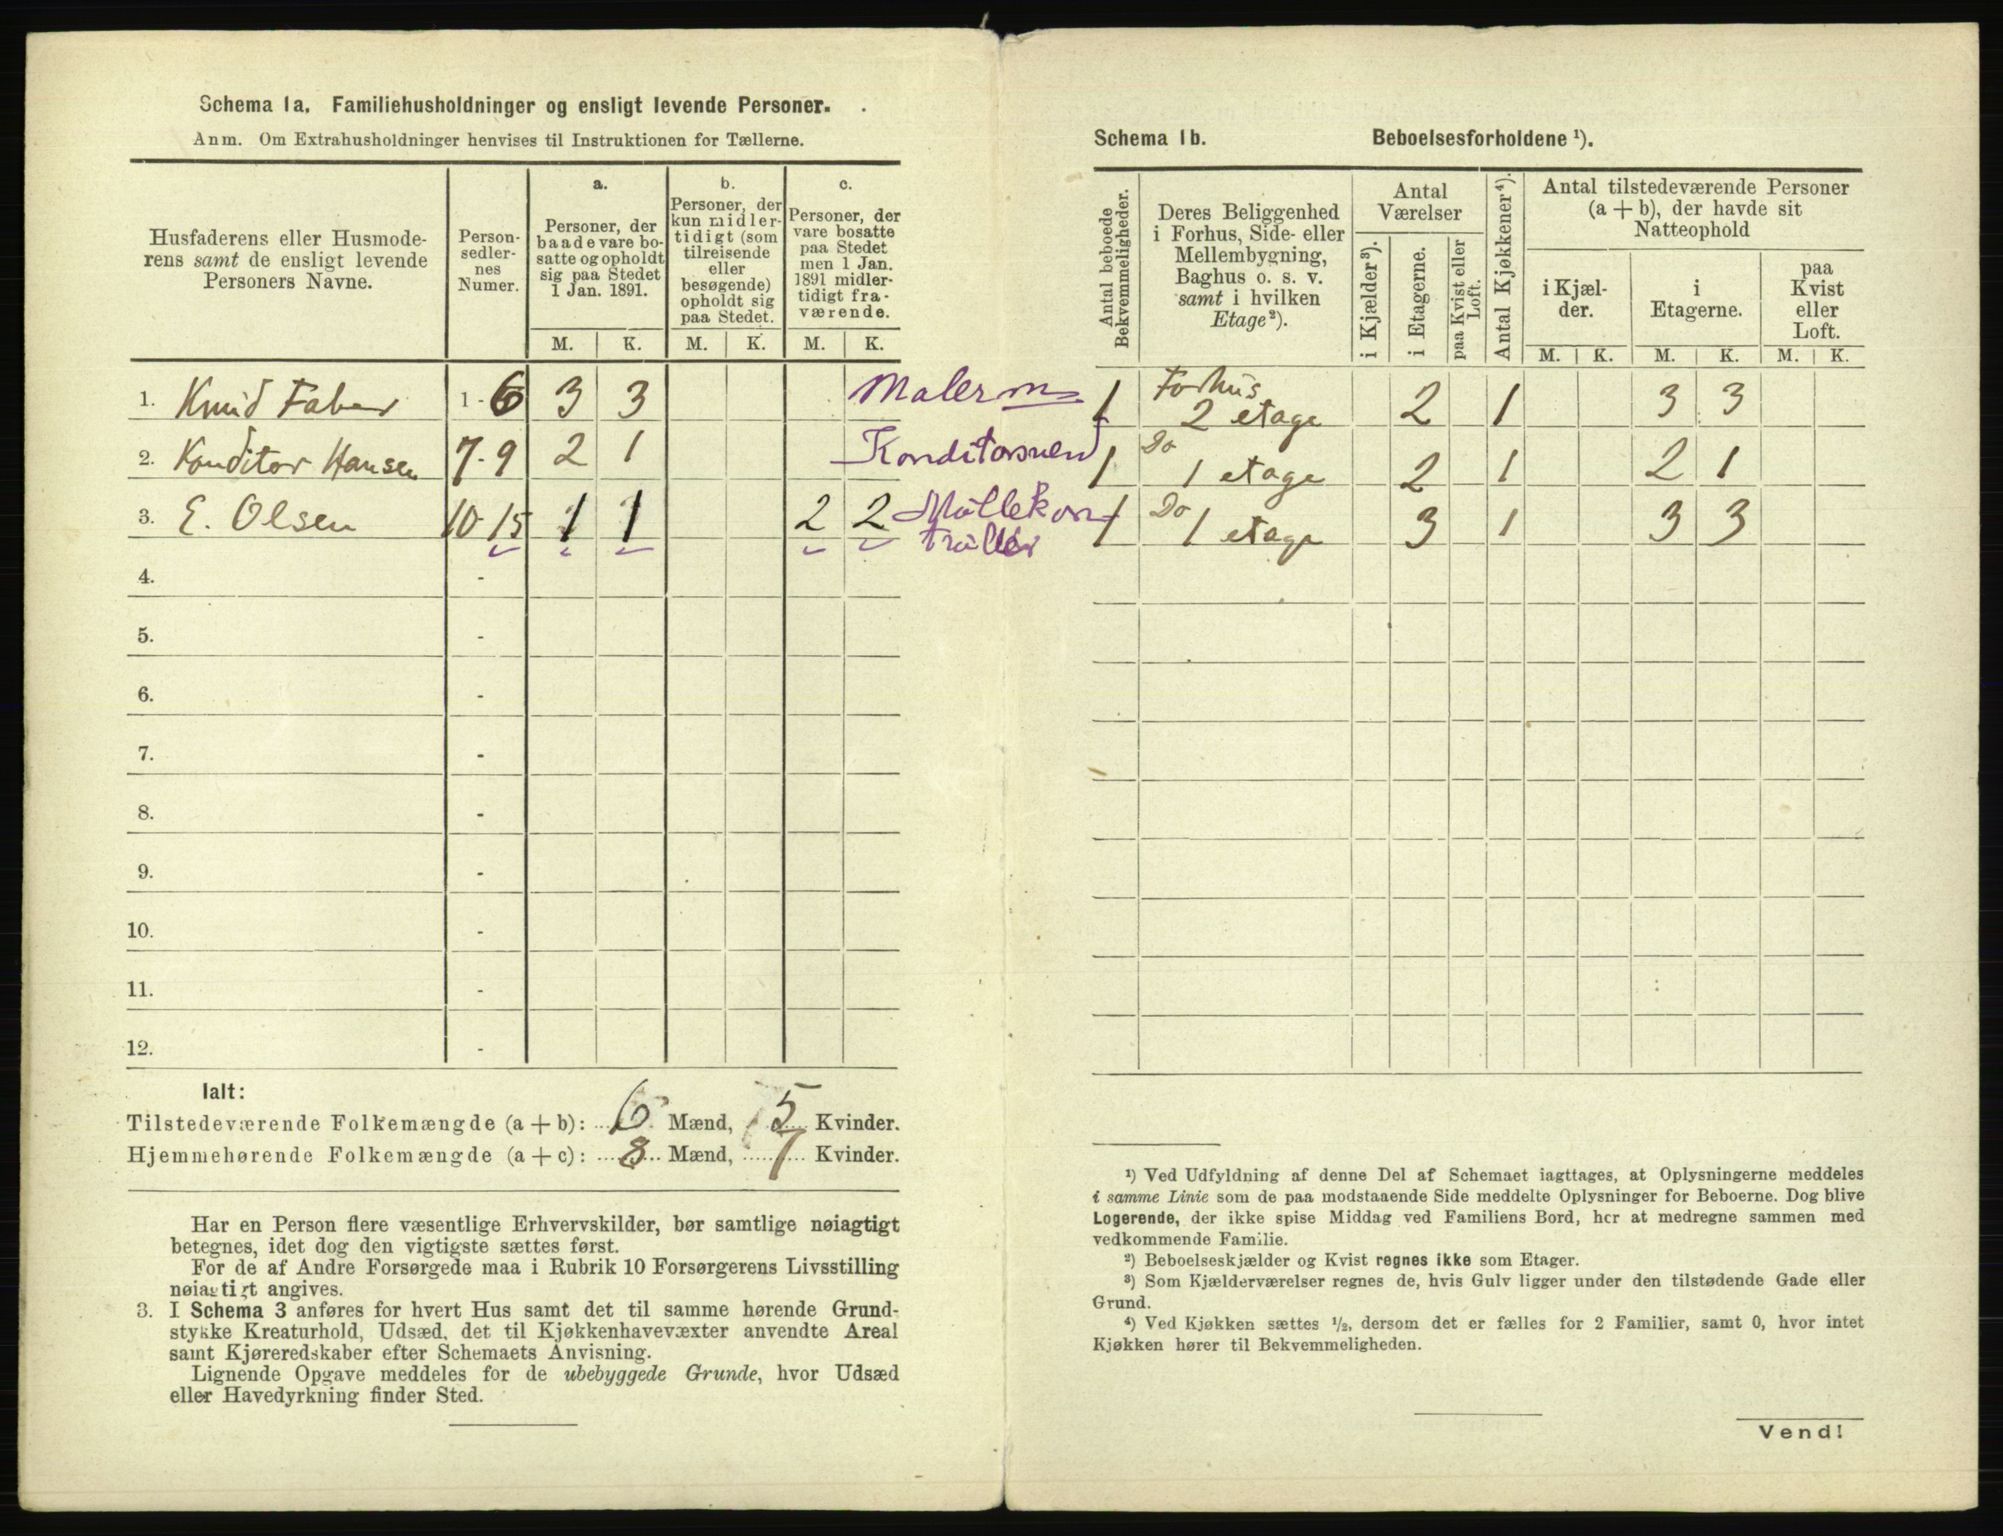 Schema 1a. Familiehusholdninger og ensligt levende Personer.
Anm. Om Extrahusholdninger henvises til Instruktionen for Tællerne.
Husfaderens eller Husmoderens samt de ensligt levende Personers Navne.
Personsedlernes Numer.
a.
Personer, der baade vare bosatte og opholdt sig paa Stedet 1 Jan. 1891.
b.
Personer, der kun midlertidigt (som tilreisende eller besøgende) opholdt sig paa Stedet.
c.
Personer, der vare bosatte paa Stedet men 1 Jan. 1891 midlertidigt fraværende.
M. K. M. K. M. K.
1. Knud Faber 1-6 3 3 Malerm
2. Konditor Hansen 7-9 2 1 Konditorsvend
3. E. Olsen 10-15 1 1 2 2
4. -
5. -
6. -
7. -
8. -
9. -
10. -
11. -
12. -
Ialt:
Tilstedeværende Folkemængde (a + b): 6 Mænd, 5 Kvinder.
Hjemmehørende Folkemængde (a + c): 8 Mænd, 7 Kvinder.
Har en Person flere væsentlige Erhvervskilder, bør samtlige nøiagtigt
betegnes, idet dog den vigtigste sættes først.
For de af Andre Forsørgede maa i Rubrik 10 Forsørgerens Livsstilling
nøiagtigt angives.
3. I Schema 3 anføres for hvert Hus samt det til samme hørende Grund-
stykke Kreaturhold, Udsæd, det til Kjøkkenhavevæxter anvendte Areal
samt Kjøreredskaber efter Schemaets Anvisning.
Lignende Opgave meddeles for de ubebyggede Grunde, hvor Udsæd
eller Havedyrkning finder Sted.
Schema 1b. Beboelsesforholdene ¹).
Antal beboede Bekvemmeligheder.
Deres Beliggenhed i Forhus, Side- eller Mellembygning, Baghus o. s. v. samt i hvilken Etage²).
Antal Værelser
i Kjælder³).
i Etagerne.
paa Kvist eller Loft.
Antal Kjøkkener⁴).
Antal tilstedeværende Personer (a + b), der havde sit Natteophold
i Kjælder.
i Etagerne.
paa Kvist eller Loft.
M. K. M. K. M. K.
1 Forhus 2 etage 2 1 3 3
1 Do 1 etage 2 1 2 1
1 Do 1 etage 3 1 3 3
¹) Ved Udfyldning af denne Del af Schemaet iagttages, at Oplysningerne meddeles
i samme Linie som de paa modstaaende Side meddelte Oplysninger for Beboerne. Dog blive
Logerende, der ikke spise Middag ved Familiens Bord, her at medregne sammen med
vedkommende Familie.
²) Beboelseskjælder og Kvist regnes ikke som Etager.
³) Som Kjælderværelser regnes de, hvis Gulv ligger under den tilstødende Gade eller
Grund.
⁴) Ved Kjøkken sættes ½, dersom det er fælles for 2 Familier, samt 0, hvor intet
Kjøkken hører til Bekvemmeligheden.
Vend!